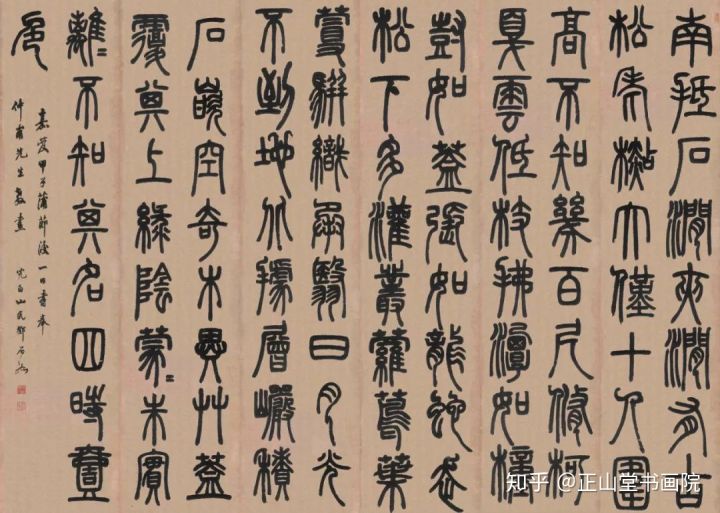 南抵石澗夾澗有古
松老杉大僅十人圍
高不知幾百尺修柯
戛雲低枝拂潭如幢
豎如蓋張如龍蛇走
松下多灌叢蘿蔦葉
蔓駢織承翳日月光
不到地北據層巖積
石嵌空奇木異草蓋
覆其上綠陰蒙〻朱實
離〻不知其名四時壹
色
嘉慶甲子蒲節後一日書奉
仲甫先生教畫 完白山民鄧石如
知乎 @正山堂书画院